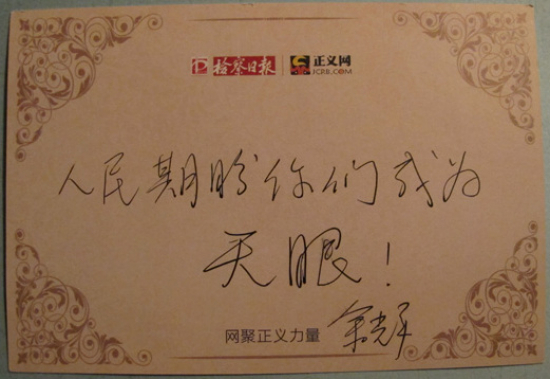 检察日报 正义网
JCRB.COM
人民期盼你们成为
天眼！
网聚正义力量